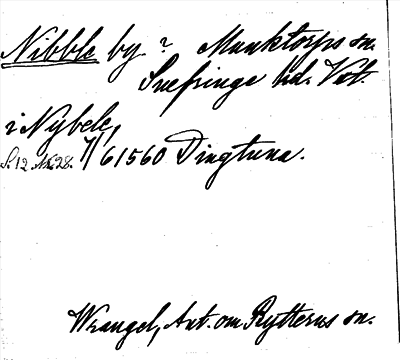 Nibble by? Munktorps sn.
Snefringe hd. Vst.
i Nybele,
S. 12 No 28. 7/6 1560 Dingtuna.
Wrangel, Ant. om Rytterns sn.